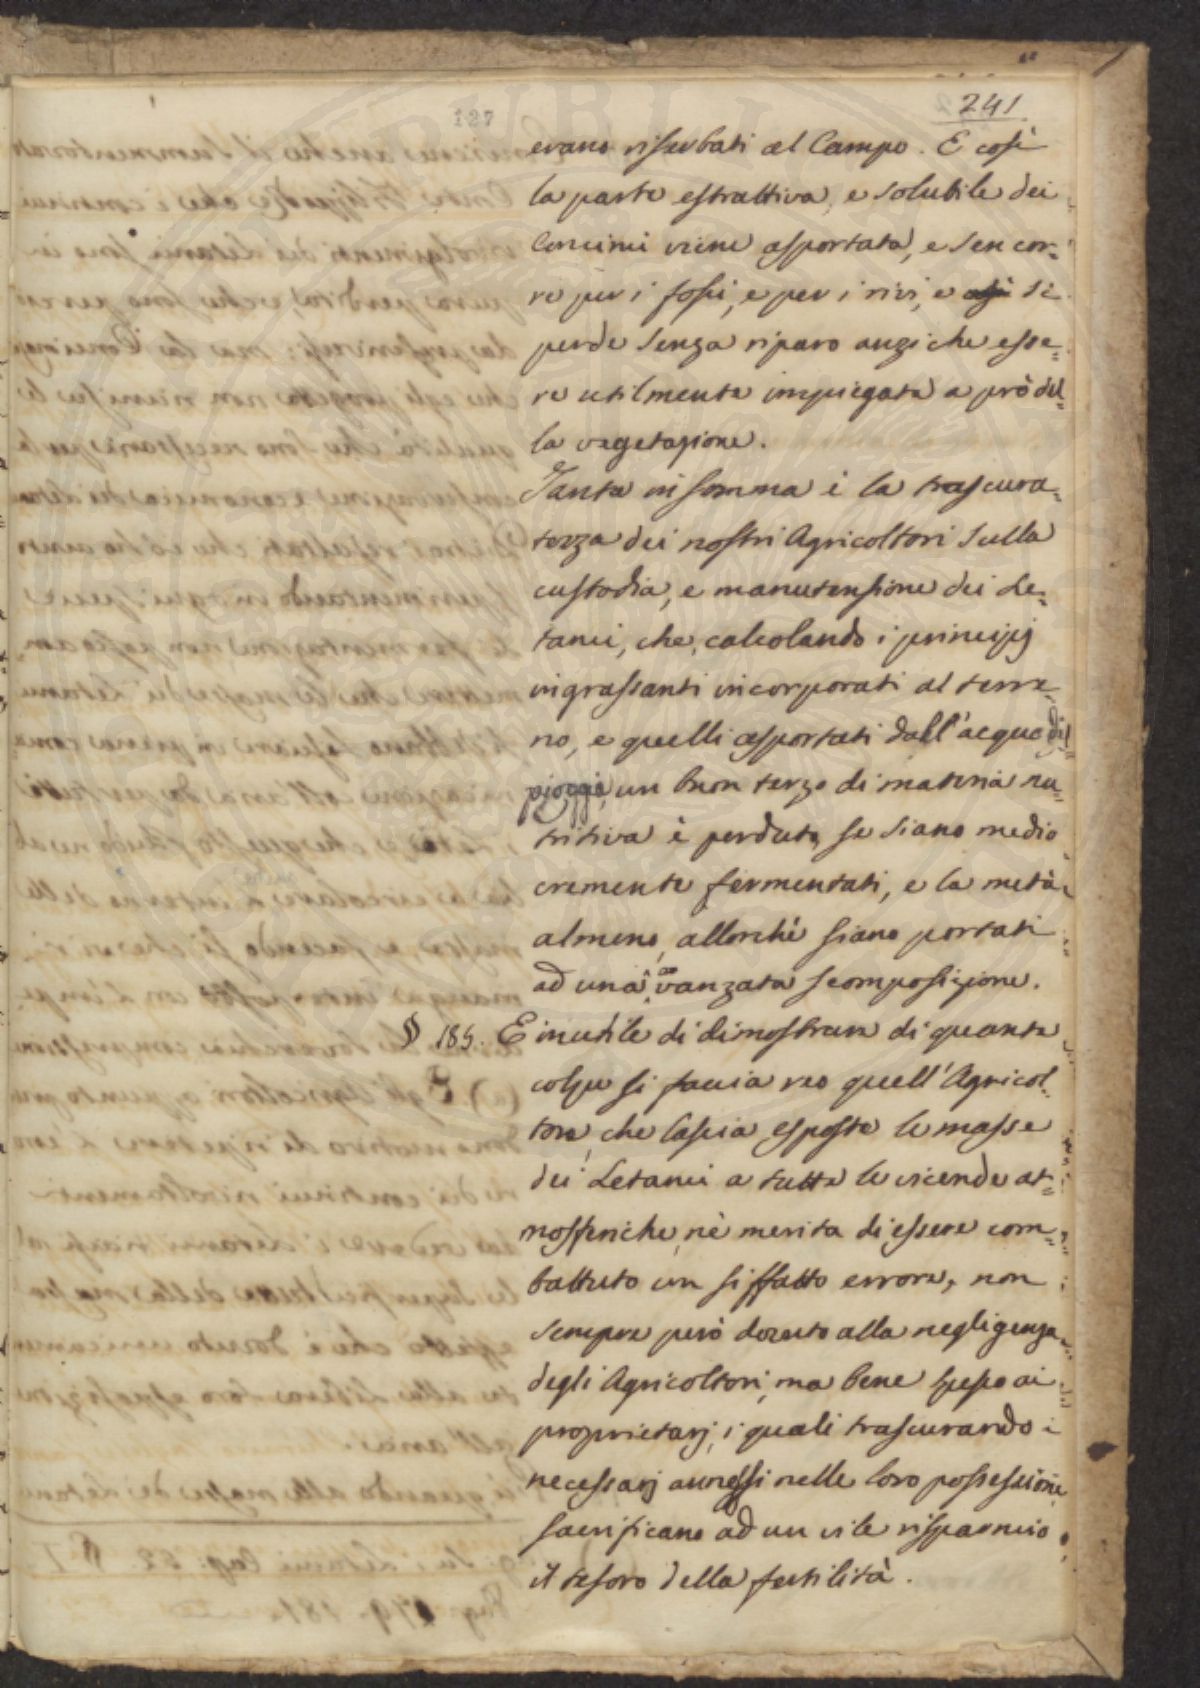 127
241
erano riserbati al Campo. E così
la parte estrattiva, e solubile dei
Concimi viene asportata, e sen cor=
re per i fossi, e per i rivi, e si
perde senza riparo anzi che esse=
re utilmente impiegata a prò del=
la vegetazione.
Tanta in somma è la trascura=
tezza dei nostri Agricoltori sulla
custodia, e manutensione dei Le=
tami, che, calcolando i principj
ingrassanti incorporati al terre=
no, e quelli asportati dall'acqua di
pioggia, un buon terzo di materia nu=
tritiva è perduto, se siano medio=
cremente fermentati, e la metà
almeno, allorchè siano portati
ad una avanzata scomposizione.
§ 185. E inutile di dimostrare di quanta
colpa si faccia reo quell'Agricol=
tore, che lascia esposte le masse
dei Letami a tutte le vicende at=
mosferiche, nè merita di essere com=
battuto un siffatto errore, non
sempre però dovuto alla negligenza
degli Agricoltori, ma bene spesso ai
proprietarj, i quali trascurando i
necessarj annessi nelle loro possessioni
sacrificano ad un vile risparmio
il tesoro della fertilità.